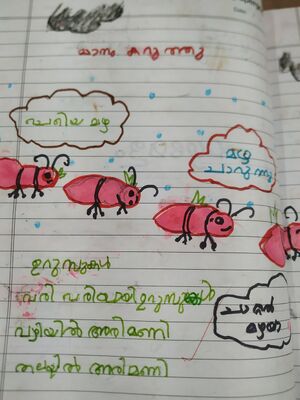 മാനം കറുത്തു
ചെറിയ മഴ
മഴ
ചാറുന്നു
ഉറുമ്പുകൾ
വരി വരിയായി ഉറുമ്പുകൾ
വഴിയിൽ അരിമണി
തലയിൽ അരിമണി